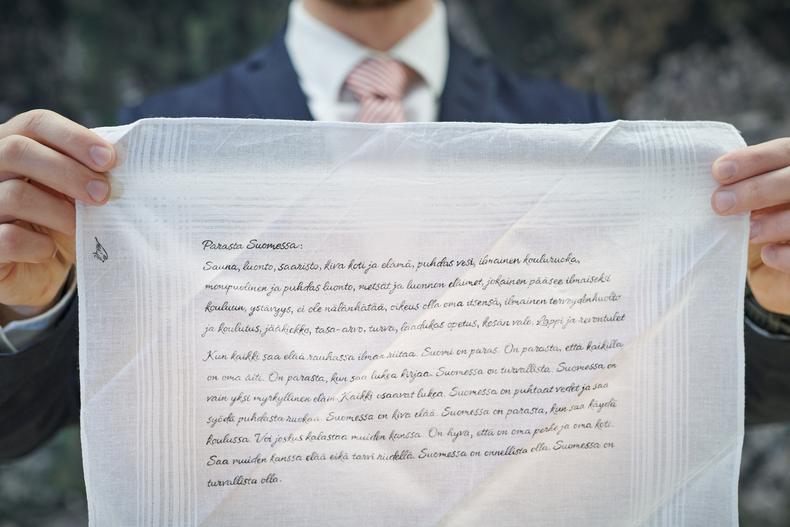 Parasta Suomessa:
Sauna, luonto, saaristo, kiva koti ja elämä, puhdas vesi, ilmainen kouluruoka,
monipuolinen ja puhdas luonto, metsät ja luonnon eläimet, jokainen pääsee ilmaiseksi
kouluun, ystävyys, ei ole nälänhätää, oikeus olla oma itsensä, ilmainen terveydenhuolto
ja koulutus, jääkiekko, tasa-arvo, turva, laadukas opetus, kesän valo, Lappi ja revontulet
Kun kaikki saa elää rauhassa ilman riitaa. Suomi on paras. On parasta, että kaikilla
on oma äiti. On parasta, kun saa lukea kirjaa. Suomessa on turvallista. Suomessa on
vain yksi myrkyllinen eläin. Kaikki osaavat lukea. Suomessa on puhtaat vedet ja saa
syödä puhdasta ruokaa. Suomessa on kiva elää. Suomessa on parasta, kun saa käydä
koulussa. Voi joskus kalastaa muiden kanssa. On hyvä, että on oma perhe ja oma koti.
Saa muiden kanssa elää eikä tarvi riidellä. Suomessa on onnellista olla. Suomessa on
turvallista olla.